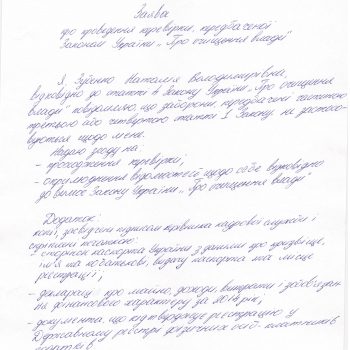 Заява
про проведення перевірки, передбаченої
Законом України „Про очищення влади"
Я, Зубенко Наталія Володимирівна,
відповідно до статті 4 Закону України „Про очищення
влади" повідомляю, що заборони, передбачені частиною
третьою або четвертою статті 1 Закону, не застосо-
вуються щодо мене.
Надаю згоду на:
- проходження перевірки;
- оприлюднення відомостей щодо себе відповідно
до вимог Закону України „Про очищення влади"
Додаток:
копії, засвідчені підписом керівника кадрової служби і
скріплені печаткою:
- сторінок паспорта України з даними про прізвище,
ім'я та по батькові, видачу паспорта та місце
реєстрації;
- декларації про майно, доходи, витрати і зобов'язан-
ня фінансового характеру за 2014 рік;
- документа, що підтверджує реєстрацію у
Державному реєстрі фізичних осіб - платників
податків